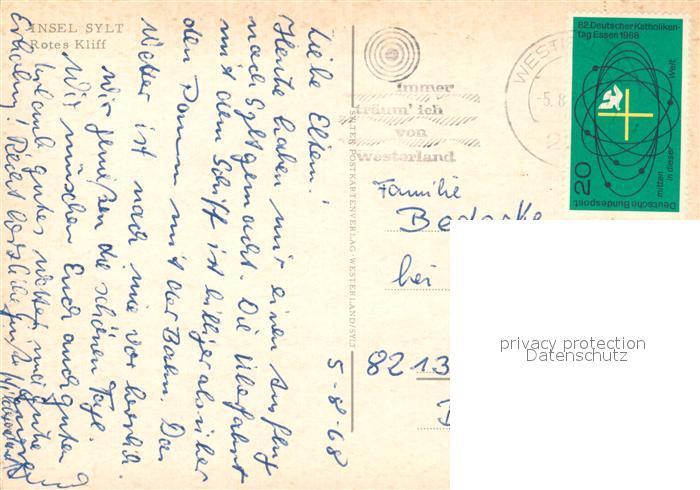 INSEL SYLT
Rotes Kliff
5-8-68
Liebe Eltern!
Heute haben wir einen Ausflug
nach Sylt gemacht. Die Überfahrt
mit dem Schiff ist billiger als über
den Damm mit der Bahn. Das
Wetter ist nach wie vor herrlich.
Wir genießen die schönen Tage.
Wir wünschen Euch auch guten
Urlaub gutes Wetter und gute
Erholung! Recht herzliche Grüße
SYLTER POSTKARTENVERLAG · WESTERLAND/SYLT
immer
träum' ich
von
westerland
WESTE
-5.8.
82. Deutscher Katholiken-
tag Essen 1968
mitten in dieser Welt
20
Deutsche Bundespost
Familie
bei
8213
privacy protection
Datenschutz